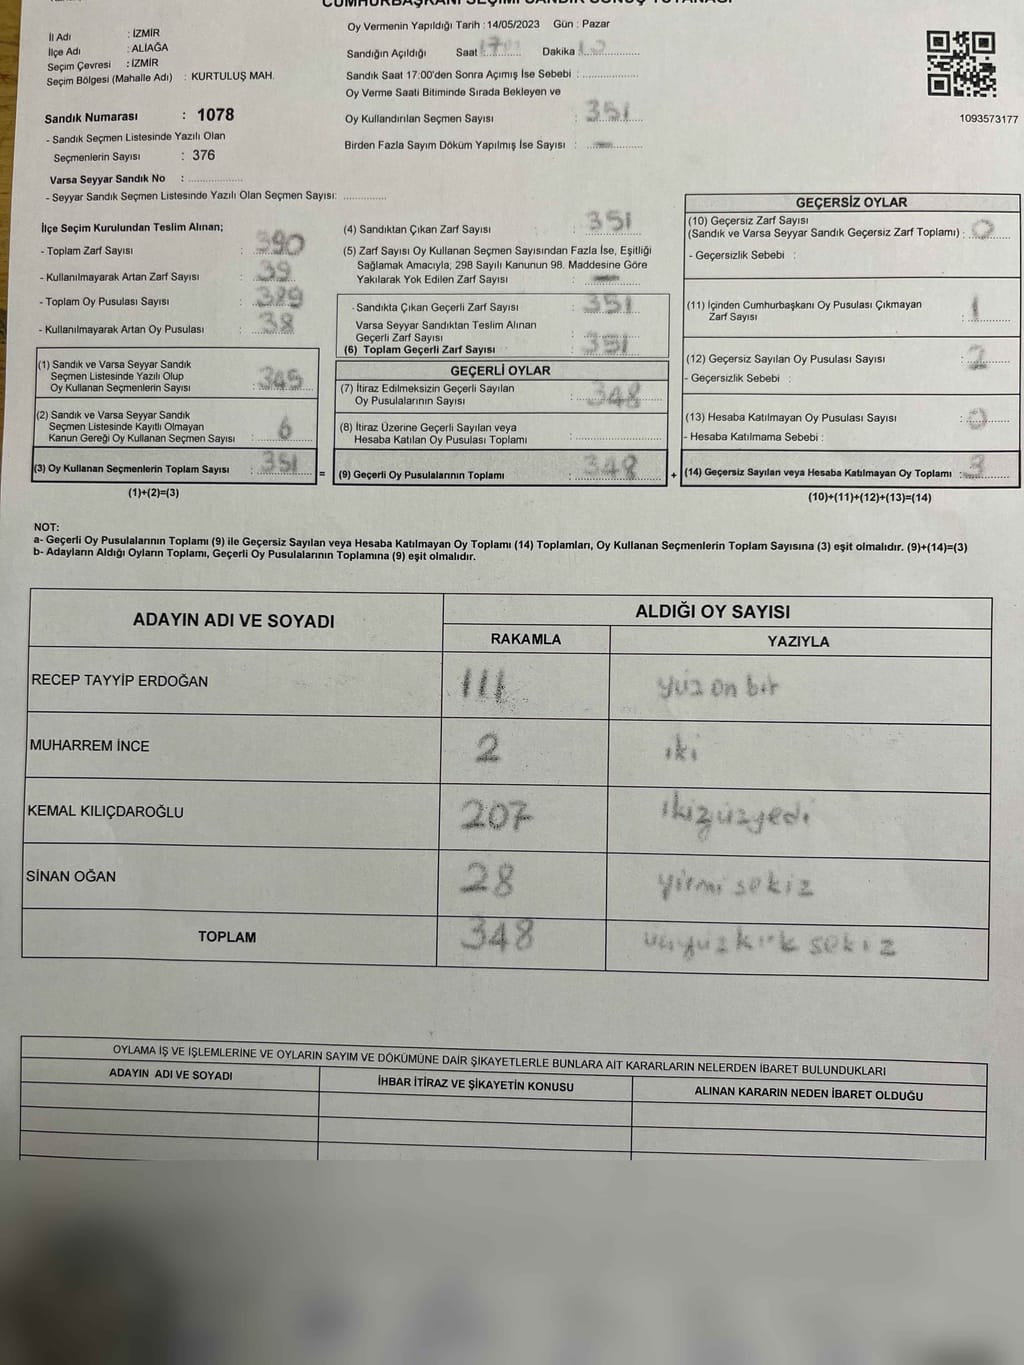 CUMHURBAŞKANI SEÇİMİ SANDIK SONUÇ TUTANAĞI
İl Adı : İZMİR
İlçe Adı : ALİAĞA
Seçim Çevresi : İZMİR
Seçim Bölgesi (Mahalle Adı) : KURTULUŞ MAH.
Sandık Numarası : 1078
- Sandık Seçmen Listesinde Yazılı Olan
Seçmenlerin Sayısı : 376
Varsa Seyyar Sandık No :
- Seyyar Sandık Seçmen Listesinde Yazılı Olan Seçmen Sayısı:
Oy Vermenin Yapıldığı Tarih : 14/05/2023 Gün : Pazar
Sandığın Açıldığı Saat Dakika :
Sandık Saat 17:00'den Sonra Açımış İse Sebebi :
Oy Verme Saati Bitiminde Sırada Bekleyen ve
Oy Kullandırılan Seçmen Sayısı : 351
Birden Fazla Sayım Döküm Yapılmış İse Sayısı :
1093573177
İlçe Seçim Kurulundan Teslim Alınan;
- Toplam Zarf Sayısı : 390
- Kullanılmayarak Artan Zarf Sayısı : 39
- Toplam Oy Pusulası Sayısı : 389
- Kullanılmayarak Artan Oy Pusulası : 38
(1) Sandık ve Varsa Seyyar Sandık
Seçmen Listesinde Yazılı Olup
Oy Kullanan Seçmenlerin Sayısı : 345
(2) Sandık ve Varsa Seyyar Sandık
Seçmen Listesinde Kayıtlı Olmayan
Kanun Gereği Oy Kullanan Seçmen Sayısı : 6
(3) Oy Kullanan Seçmenlerin Toplam Sayısı : 351
(1)+(2)=(3)
(4) Sandıktan Çıkan Zarf Sayısı : 351
(5) Zarf Sayısı Oy Kullanan Seçmen Sayısından Fazla İse, Eşitliği
Sağlamak Amacıyla, 298 Sayılı Kanunun 98. Maddesine Göre
Yakılarak Yok Edilen Zarf Sayısı :
- Sandıkta Çıkan Geçerli Zarf Sayısı : 351
Varsa Seyyar Sandıktan Teslim Alınan
Geçerli Zarf Sayısı
(6) Toplam Geçerli Zarf Sayısı : 351
GEÇERLİ OYLAR
(7) İtiraz Edilmeksizin Geçerli Sayılan
Oy Pusulalarının Sayısı : 348
(8) İtiraz Üzerine Geçerli Sayılan veya
Hesaba Katılan Oy Pusulası Toplamı :
= (9) Geçerli Oy Pusulalarının Toplamı : 348
GEÇERSİZ OYLAR
(10) Geçersiz Zarf Sayısı
(Sandık ve Varsa Seyyar Sandık Geçersiz Zarf Toplamı) : 0
- Geçersizlik Sebebi :
(11) İçinden Cumhurbaşkanı Oy Pusulası Çıkmayan
Zarf Sayısı : 1
(12) Geçersiz Sayılan Oy Pusulası Sayısı : 2
- Geçersizlik Sebebi :
(13) Hesaba Katılmayan Oy Pusulası Sayısı : 0
- Hesaba Katılmama Sebebi :
+ (14) Geçersiz Sayılan veya Hesaba Katılmayan Oy Toplamı : 3
(10)+(11)+(12)+(13)=(14)
NOT:
a- Geçerli Oy Pusulalarının Toplamı (9) ile Geçersiz Sayılan veya Hesaba Katılmayan Oy Toplamı (14) Toplamları, Oy Kullanan Seçmenlerin Toplam Sayısına (3) eşit olmalıdır. (9)+(14)=(3)
b- Adayların Aldığı Oyların Toplamı, Geçerli Oy Pusulalarının Toplamına (9) eşit olmalıdır.
ADAYIN ADI VE SOYADI ALDIĞI OY SAYISI
RAKAMLA YAZIYLA
RECEP TAYYİP ERDOĞAN 111 yüz on bir
MUHARREM İNCE 2 iki
KEMAL KILIÇDAROĞLU 207 ikiyüzyedi
SİNAN OĞAN 28 yirmi sekiz
TOPLAM 348 üçyüz kırk sekiz
OYLAMA İŞ VE İŞLEMLERİNE VE OYLARIN SAYIM VE DÖKÜMÜNE DAİR ŞİKAYETLERLE BUNLARA AİT KARARLARIN NELERDEN İBARET BULUNDUKLARI
ADAYIN ADI VE SOYADI İHBAR İTİRAZ VE ŞİKAYETİN KONUSU ALINAN KARARIN NEDEN İBARET OLDUĞU